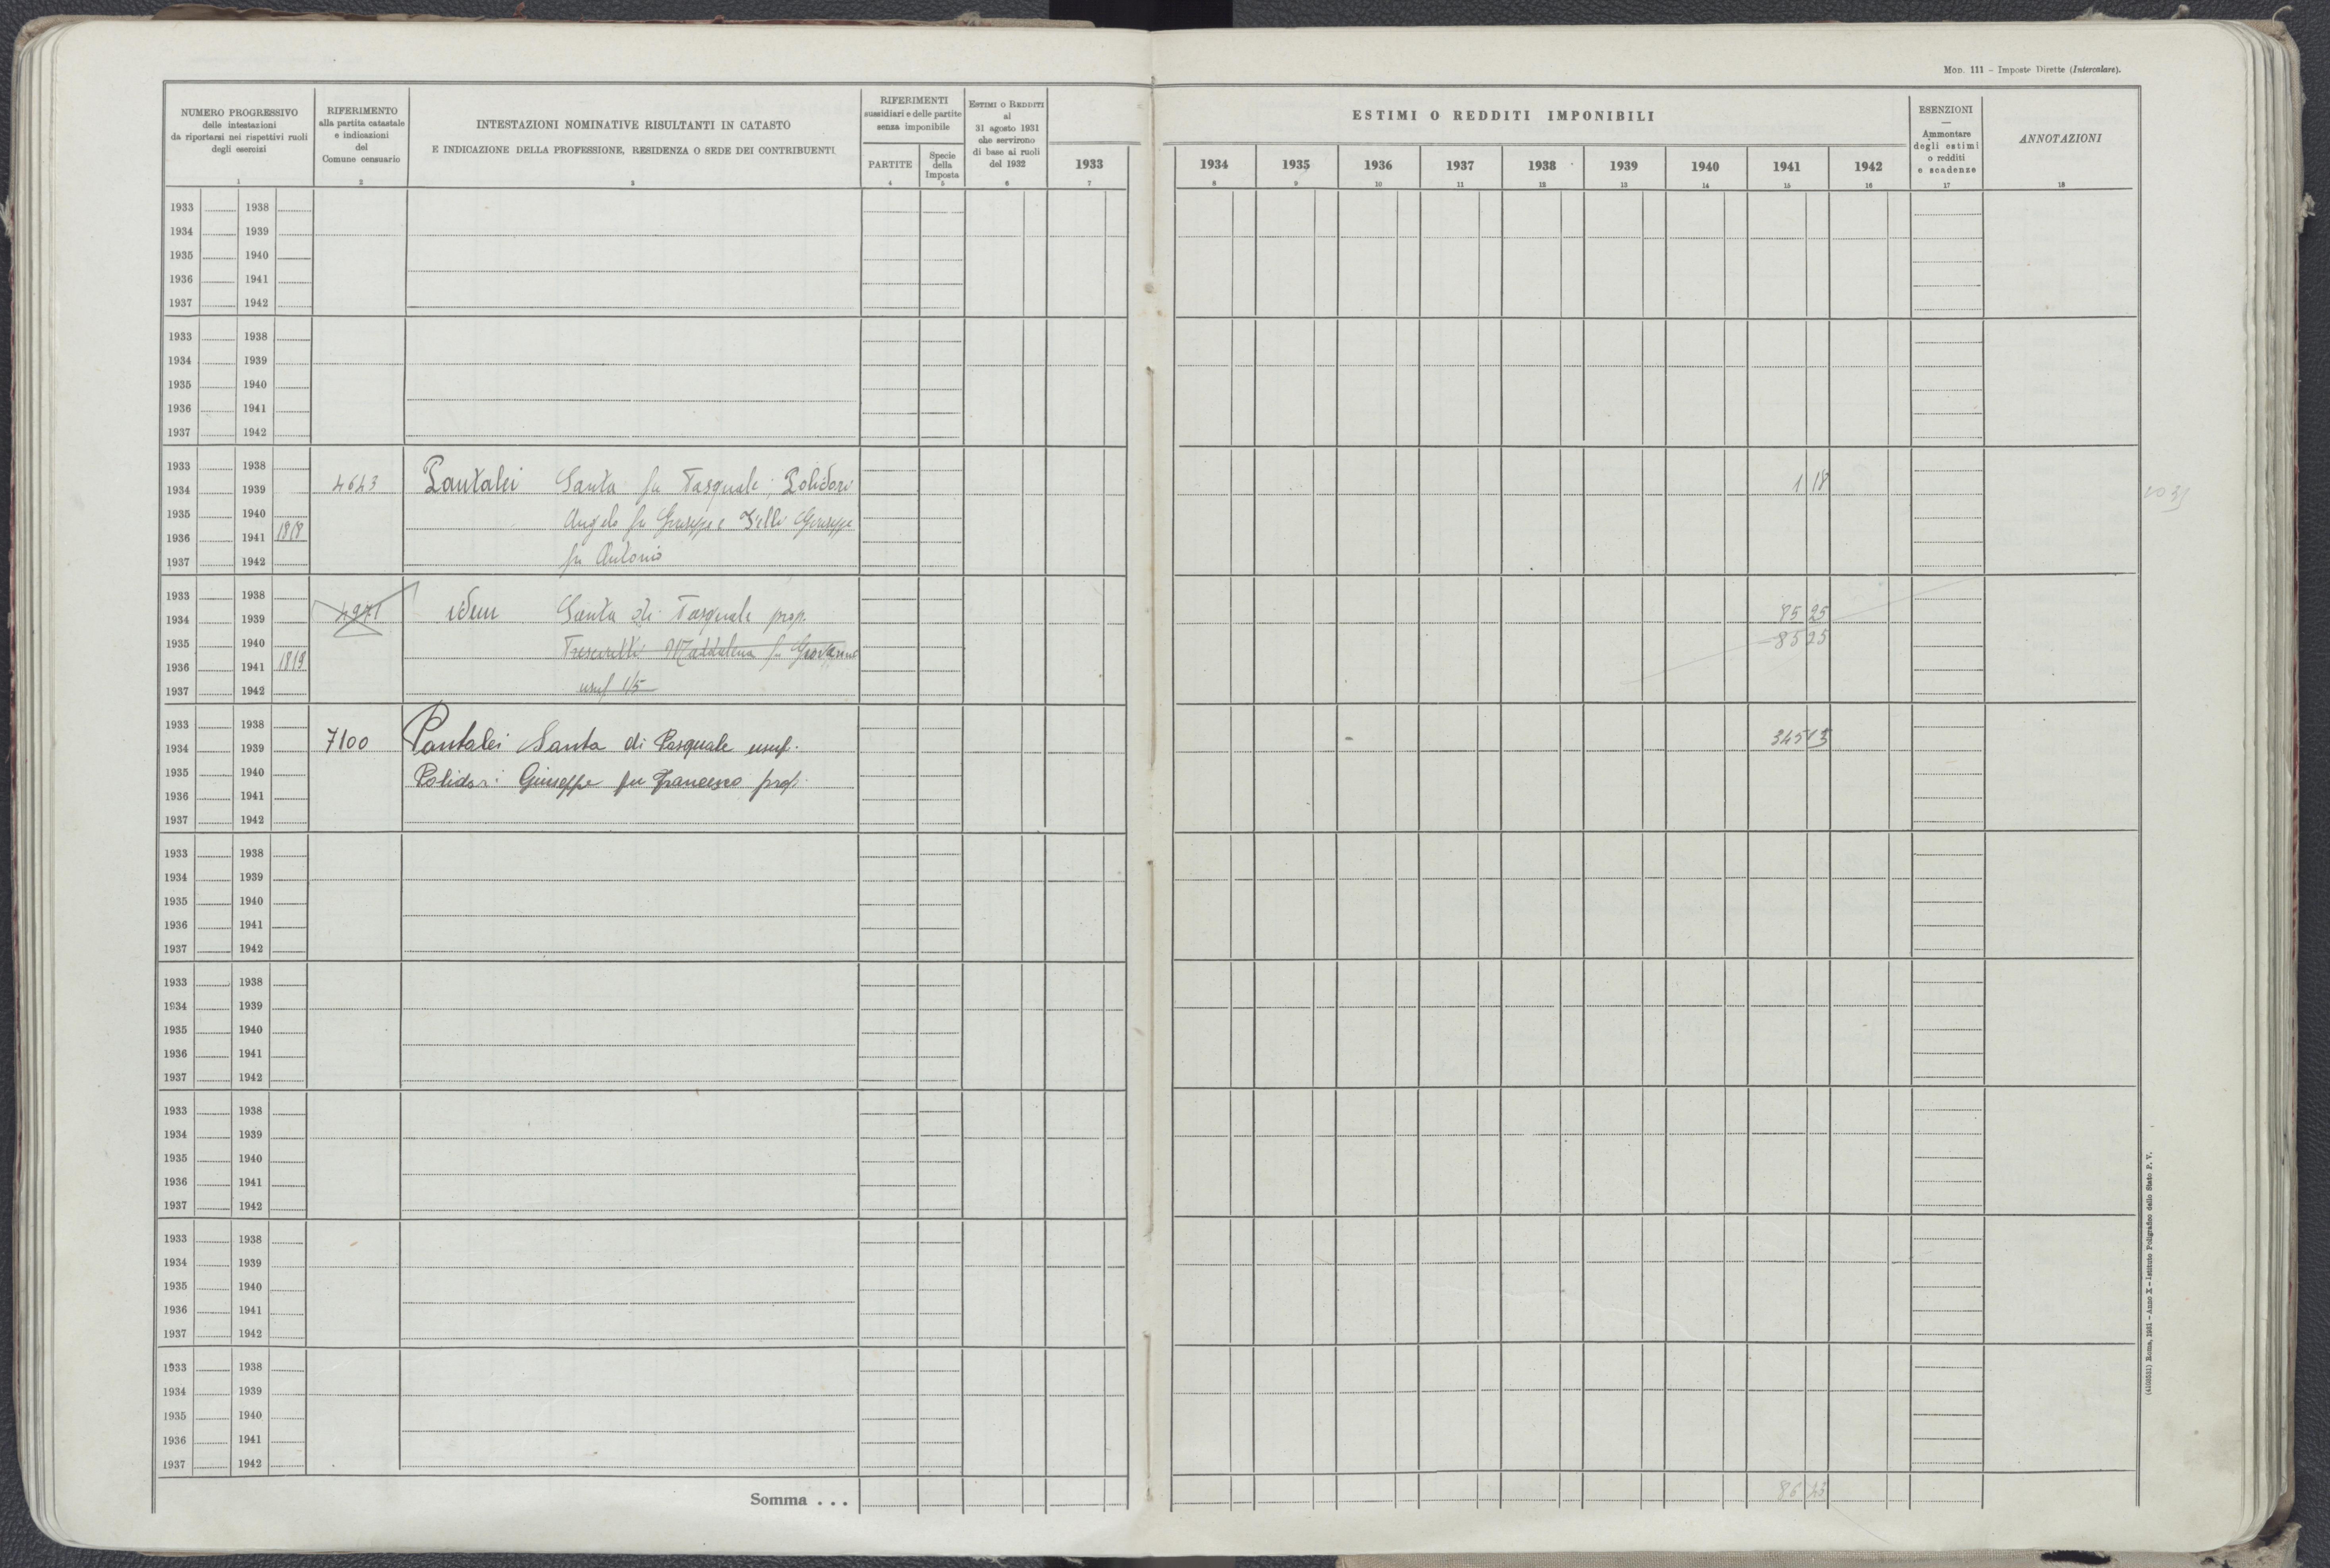 MOD. 111 - Imposte Dirette (Intercalare).
NUMERO PROGRESSIVO
delle intestazioni
da riportarsi nei rispettivi ruoli
degli esercizi
1
RIFERIMENTO
alla partita catastale
e indicazioni
del
Comune censuario
2
INTESTAZIONI NOMINATIVE RISULTANTI IN CATASTO
E INDICAZIONE DELLA PROFESSIONE, RESIDENZA O SEDE DEI CONTRIBUENTI
3
RIFERIMENTI
sussidiari e delle partite
senza imponibile
PARTITE
4
Specie
della
Imposta
5
ESTIMI O REDDITI
al
31 agosto 1931
che servirono
di base ai ruoli
del 1932
6
1933
7
ESTIMI O REDDITI IMPONIBILI
1934 1935 1936 1937 1938 1939 1940 1941 1942
8 9 10 11 12 13 14 15 16
ESENZIONI
—
Ammontare
degli estimi
o redditi
e scadenze
17
ANNOTAZIONI
18
1933 1938
1934 1939
1935 1940
1936 1941
1937 1942
1933 1938
1934 1939
1935 1940
1936 1941
1937 1942
1933 1938
1934 1939 4643 Pantalei Santa fu Pasquale; Polidori 1 18
1935 1940 Angelo fu Giuseppe Giuseppe
1936 1941 1818
1937 1942 fu Antonio
1933 1938
1934 1939 4971 idem Santa di Pasquale prop. 85 25
1935 1940 Maddalena fu Giovanni -85 25
1936 1941 1819
1937 1942 usuf 1/5
1933 1938
1934 1939 7100 Pantalei Santa di Pasquale usuf. 345 13
1935 1940 Polidori Giuseppe fu Francesco prop.
1936 1941
1937 1942
1933 1938
1934 1939
1935 1940
1936 1941
1937 1942
1933 1938
1934 1939
1935 1940
1936 1941
1937 1942
1933 1938
1934 1939
1935 1940
1936 1941
1937 1942
1933 1938
1934 1939
1935 1940
1936 1941
1937 1942
1933 1938
1934 1939
1935 1940
1936 1941
1937 1942
Somma . . . 86 43
(4103531) Roma, 1931 - Anno X - Istituto Poligrafico dello Stato P. V.